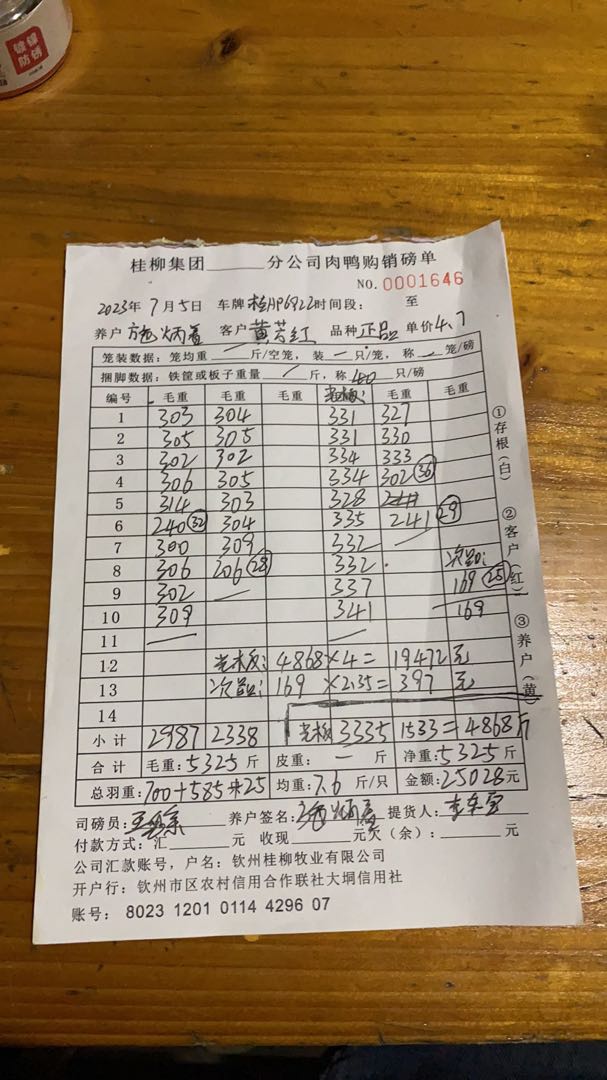 镀镍
防锈
桂柳集团______分公司肉鸭购销磅单
NO. 0001646
2023年 7月5日 车牌 桂HP6922 时间段： 至
养户 炳 客户 黄芳红 品种 正品 单价 4.7
笼装数据：笼均重 — 斤/空笼，装 — 只/笼，称 — 笼/磅
捆脚数据：铁筐或板子重量 — 斤，称 40 只/磅
编号 毛重 毛重 毛重 毛重 毛重
1 303 304 331 327
2 305 305 331 330
3 302 302 334 333
4 306 305 334 302 (36)
5 314 303 328
6 240 (32) 304 335 241 (29)
7 300 309 332 —
8 306 206 (28) 332 次品:
9 302 — 337 169 (25)
10 309 341 169
11 — —
12 4868×4= 19472元
13 次品: 169 ×2.35= 397 元
14
小计 2987 2338 3335 1533=4868斤
合计 毛重: 5325 斤 皮重: — 斤 净重: 5325 斤
总羽重: 700+585+25 均重: 7.6 斤/只 金额: 25028元
司磅员: 养户签名: 提货人:
付款方式：汇______元 收现______元欠（余）：______元
公司汇款账号，户名：钦州桂柳牧业有限公司
开户行：钦州市区农村信用合作联社大垌信用社
账号： 8023 1201 0114 4296 07
①存根（白） ②客户（红） ③养户（黄）